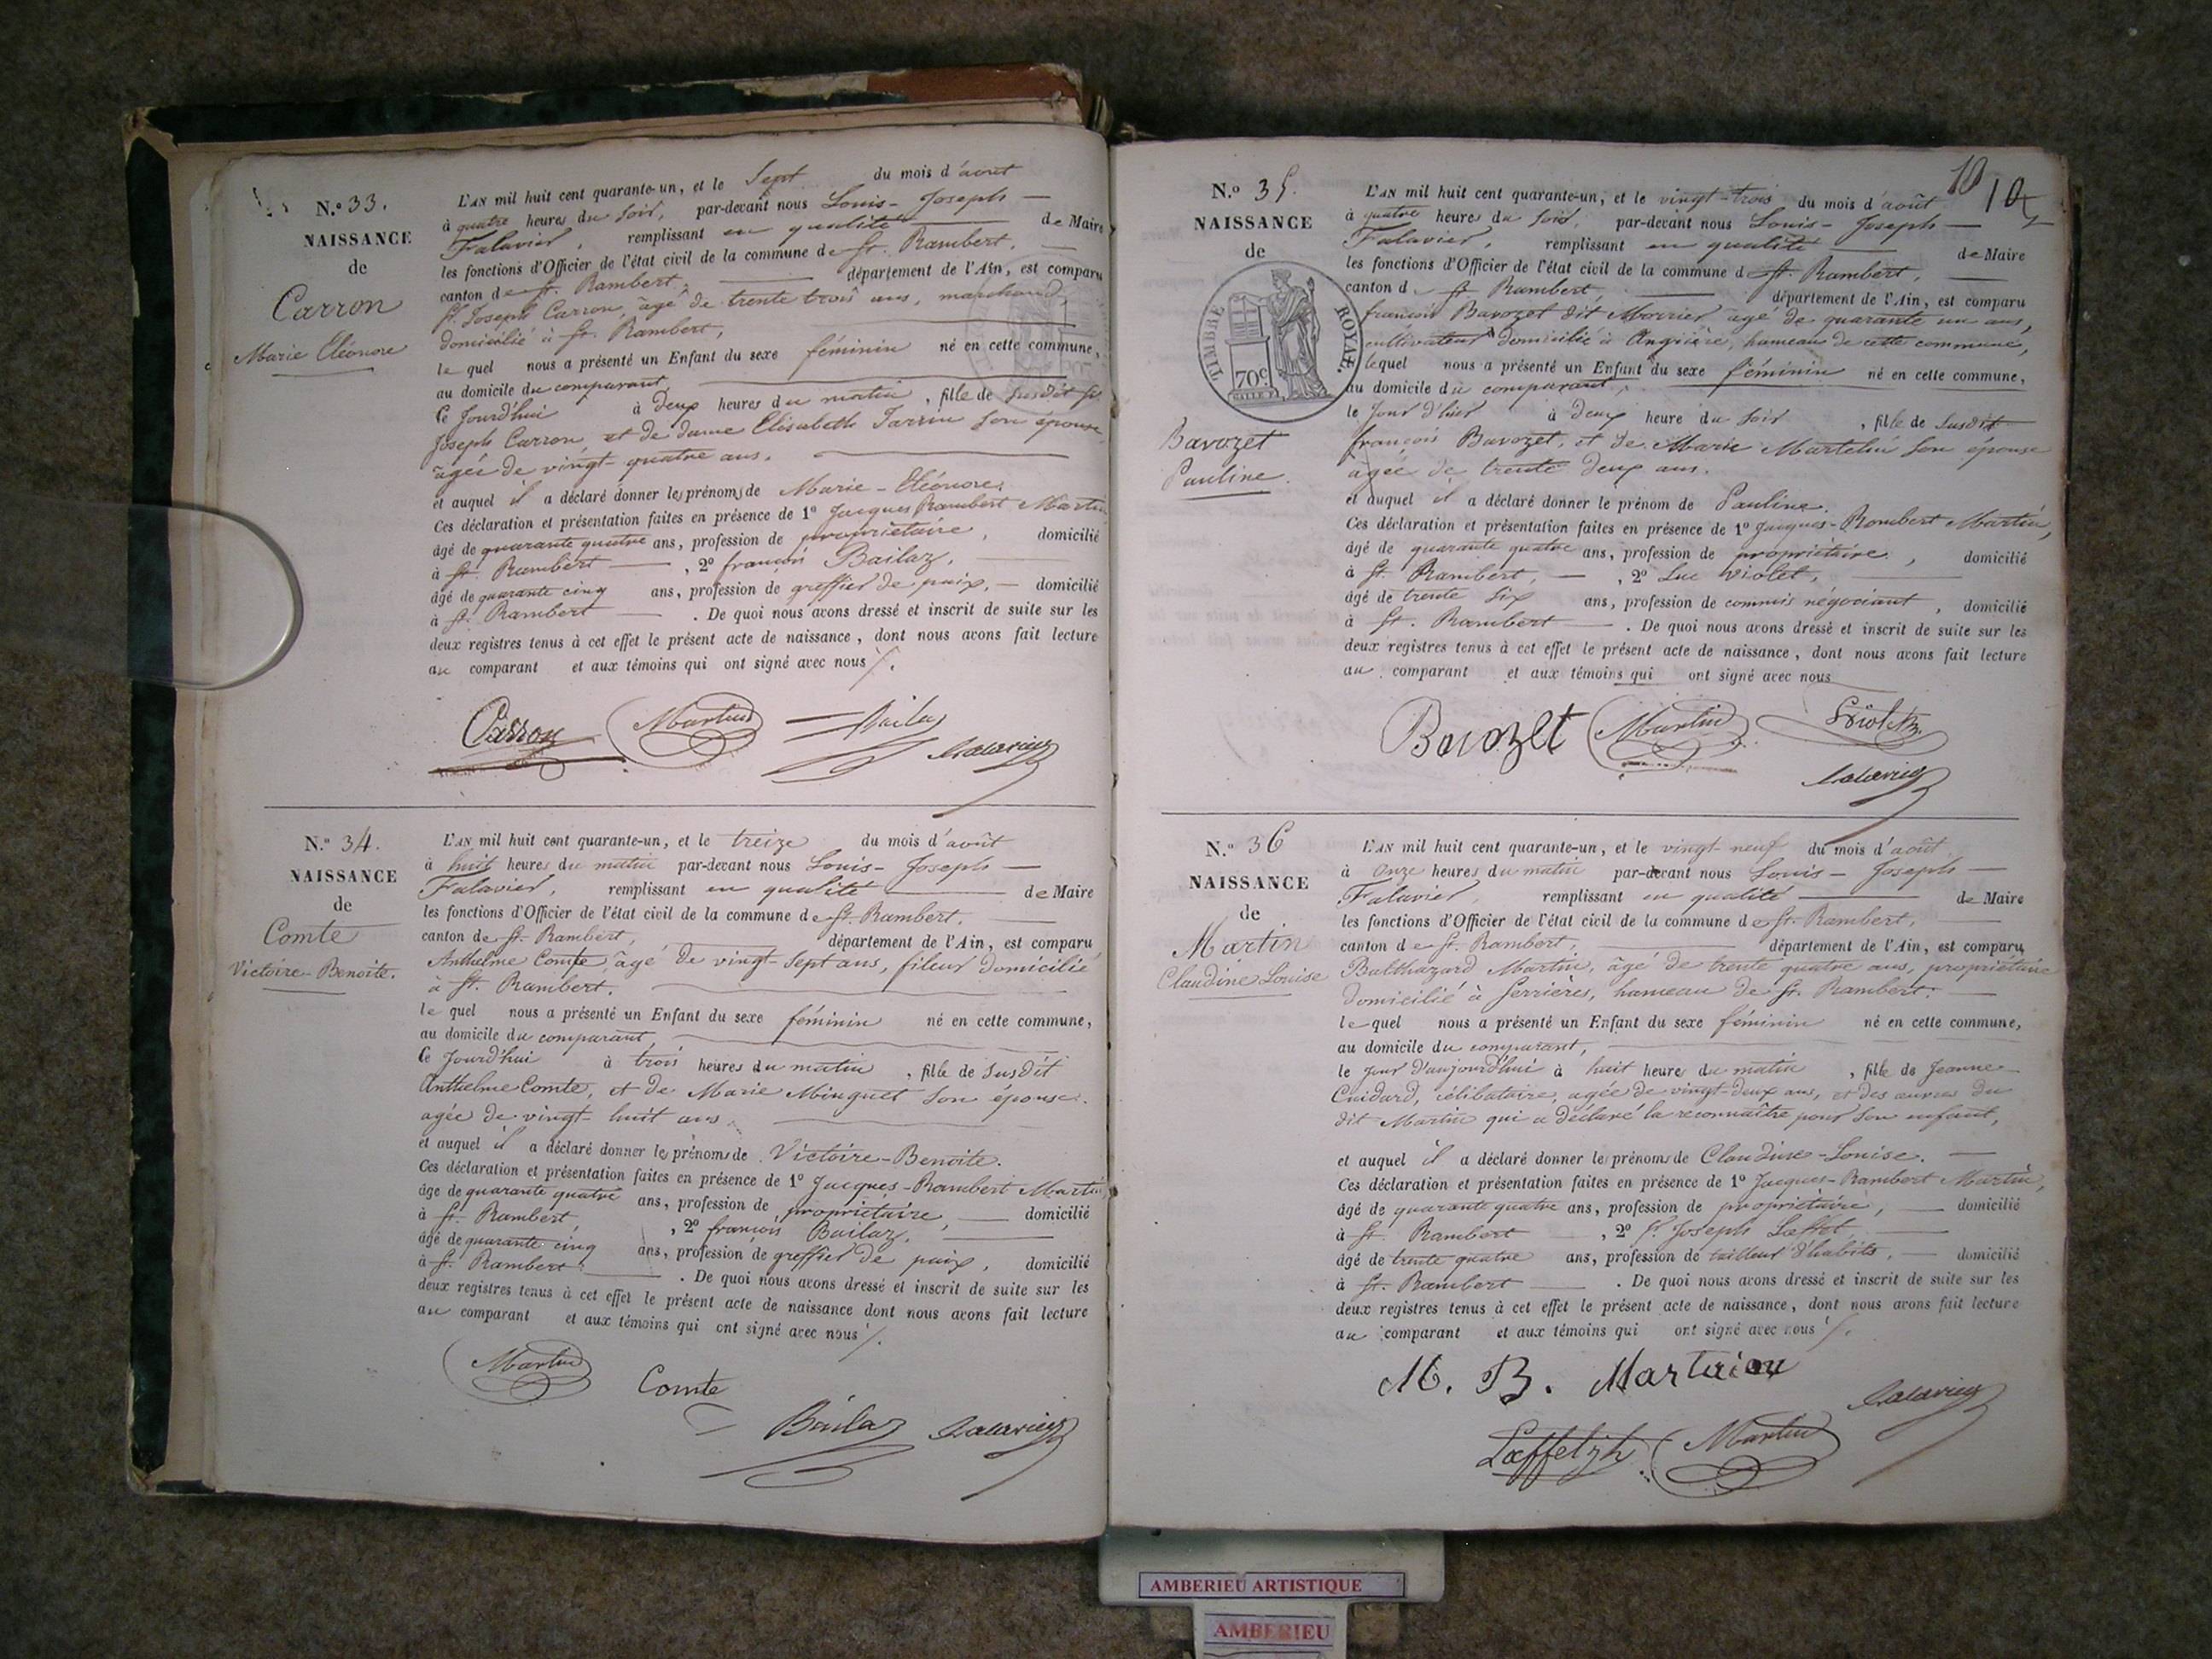 N.º 33.
NAISSANCE
de
Carron
Marie Eléonore
L'AN mil huit cent quarante-un, et le Sept du mois d'août
à quatre heures du soir, par-devant nous Louis-Joseph
Falavier, remplissant en qualité de Maire
les fonctions d'Officier de l'état civil de la commune de St. Rambert,
canton de St. Rambert, département de l'Ain, est comparu
Joseph Carron, âgé de trente trois ans, marchand,
domicilié à St. Rambert,
le quel nous a présenté un Enfant du sexe féminin né en cette commune,
au domicile du comparant,
Ce Jourd'hui à deux heures du matin, fille de susdit
Joseph Carron, et de dame Elisabeth Tarrin son épouse
âgée de vingt-quatre ans.
et auquel il a déclaré donner les prénoms de Marie-Eléonore.
Ces déclaration et présentation faites en présence de 1º Jacques Rambert Martin
âgé de quarante quatre ans, profession de propriétaire, domicilié
à St. Rambert, 2º françois Bailaz,
âgé de quarante cinq ans, profession de greffier de paix, domicilié
à St. Rambert. De quoi nous avons dressé et inscrit de suite sur les
deux registres tenus à cet effet le présent acte de naissance, dont nous avons fait lecture
au comparant et aux témoins qui ont signé avec nous
Carron Martin Bailaz
Falavier
N.º 34.
NAISSANCE
de
Comte
Victoire-Benoite.
L'AN mil huit cent quarante-un, et le treize du mois d'août
à huit heures du matin par-devant nous Louis-Joseph
Falavier, remplissant en qualité de Maire
les fonctions d'Officier de l'état civil de la commune de St. Rambert,
canton de St. Rambert, département de l'Ain, est comparu
Anthelme Comte, âgé de vingt-sept ans, fileur domicilié
à St. Rambert.
le quel nous a présenté un Enfant du sexe féminin né en cette commune,
au domicile du comparant,
Ce Jourd'hui à trois heures du matin, fille de susdit
Anthelme Comte, et de Marie Minguet son épouse
agée de vingt-huit ans.
et auquel il a déclaré donner les prénoms de Victoire-Benoite.
Ces déclaration et présentation faites en présence de 1º Jacques-Rambert Martin
âgé de quarante quatre ans, profession de propriétaire, domicilié
à St. Rambert, 2º françois Bailaz,
âgé de quarante cinq ans, profession de greffier de paix, domicilié
à St. Rambert. De quoi nous avons dressé et inscrit de suite sur les
deux registres tenus à cet effet le présent acte de naissance dont nous avons fait lecture
au comparant et aux témoins qui ont signé avec nous
Martin Comte
Bailaz Falavier
10 10
N.º 35.
NAISSANCE
de
TIMBRE ROYAL.
70c
Bavozet
Pauline.
L'AN mil huit cent quarante-un, et le vingt-trois du mois d'août
à quatre heures du soir, par-devant nous Louis-Joseph
Falavier, remplissant en qualité de Maire
les fonctions d'Officier de l'état civil de la commune de St. Rambert,
canton d. St. Rambert, département de l'Ain, est comparu
françois Bavozet dit Morrier âgé de quarante un ans,
cultivateur domicilié à Angrière, hameau de cette commune,
lequel nous a présenté un Enfant du sexe féminin né en cette commune,
au domicile du comparant,
le Jour d'hier à deux heure du soir, fille de susdit
françois Bavozet, et de Marie Martelin son épouse
agée de trente deux ans.
et auquel il a déclaré donner le prénom de Pauline.
Ces déclaration et présentation faites en présence de 1º Jacques-Rambert Martin,
âgé de quarante quatre ans, profession de propriétaire, domicilié
à St. Rambert, 2º Luc Violet,
âgé de trente six ans, profession de commis négociant, domicilié
à St. Rambert. De quoi nous avons dressé et inscrit de suite sur les
deux registres tenus à cet effet le présent acte de naissance, dont nous avons fait lecture
au comparant et aux témoins qui ont signé avec nous
Bavozet Martin
Falavier
N.º 36
NAISSANCE
de
Martin
Claudine Louise
L'AN mil huit cent quarante-un, et le vingt-neuf du mois d'août
à onze heures du matin par-devant nous Louis-Joseph
Falavier, remplissant en qualité de Maire
les fonctions d'Officier de l'état civil de la commune de St. Rambert,
canton de St. Rambert, département de l'Ain, est comparu
Balthazard Martin, âgé de trente quatre ans, propriétaire
domicilié à Serrières, hameau de St. Rambert.
le quel nous a présenté un Enfant du sexe féminin né en cette commune,
au domicile du comparant,
le jour d'aujourd'hui à huit heure du matin, fille de Jeanne
Cuidard, célibataire, agée de vingt-deux ans, et des œuvres du
dit Martin qui a déclaré la reconnaître pour son enfant,
et auquel il a déclaré donner les prénoms de Claudine-Louise.
Ces déclaration et présentation faites en présence de 1º Jacques-Rambert Martin,
âgé de quarante quatre ans, profession de propriétaire, domicilié
à St. Rambert, 2º Joseph
âgé de trente quatre ans, profession de tailleur d'habits, domicilié
à St. Rambert. De quoi nous avons dressé et inscrit de suite sur les
deux registres tenus à cet effet le présent acte de naissance, dont nous avons fait lecture
au comparant et aux témoins qui ont signé avec nous
M. B. Martin
Falavier
Martin
AMBERIEU ARTISTIQUE
AMBERIEU